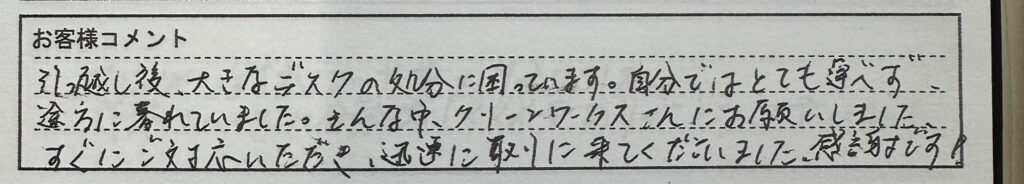 お客様コメント
引っ越し後、大きなデスクの処分に困っています。自分ではとても運べず、
途方に暮れていました。そんな中、クリーンワークスさんにお願いしました。
すぐにご対応いただき、迅速に取りに来てくださいました、感謝です!